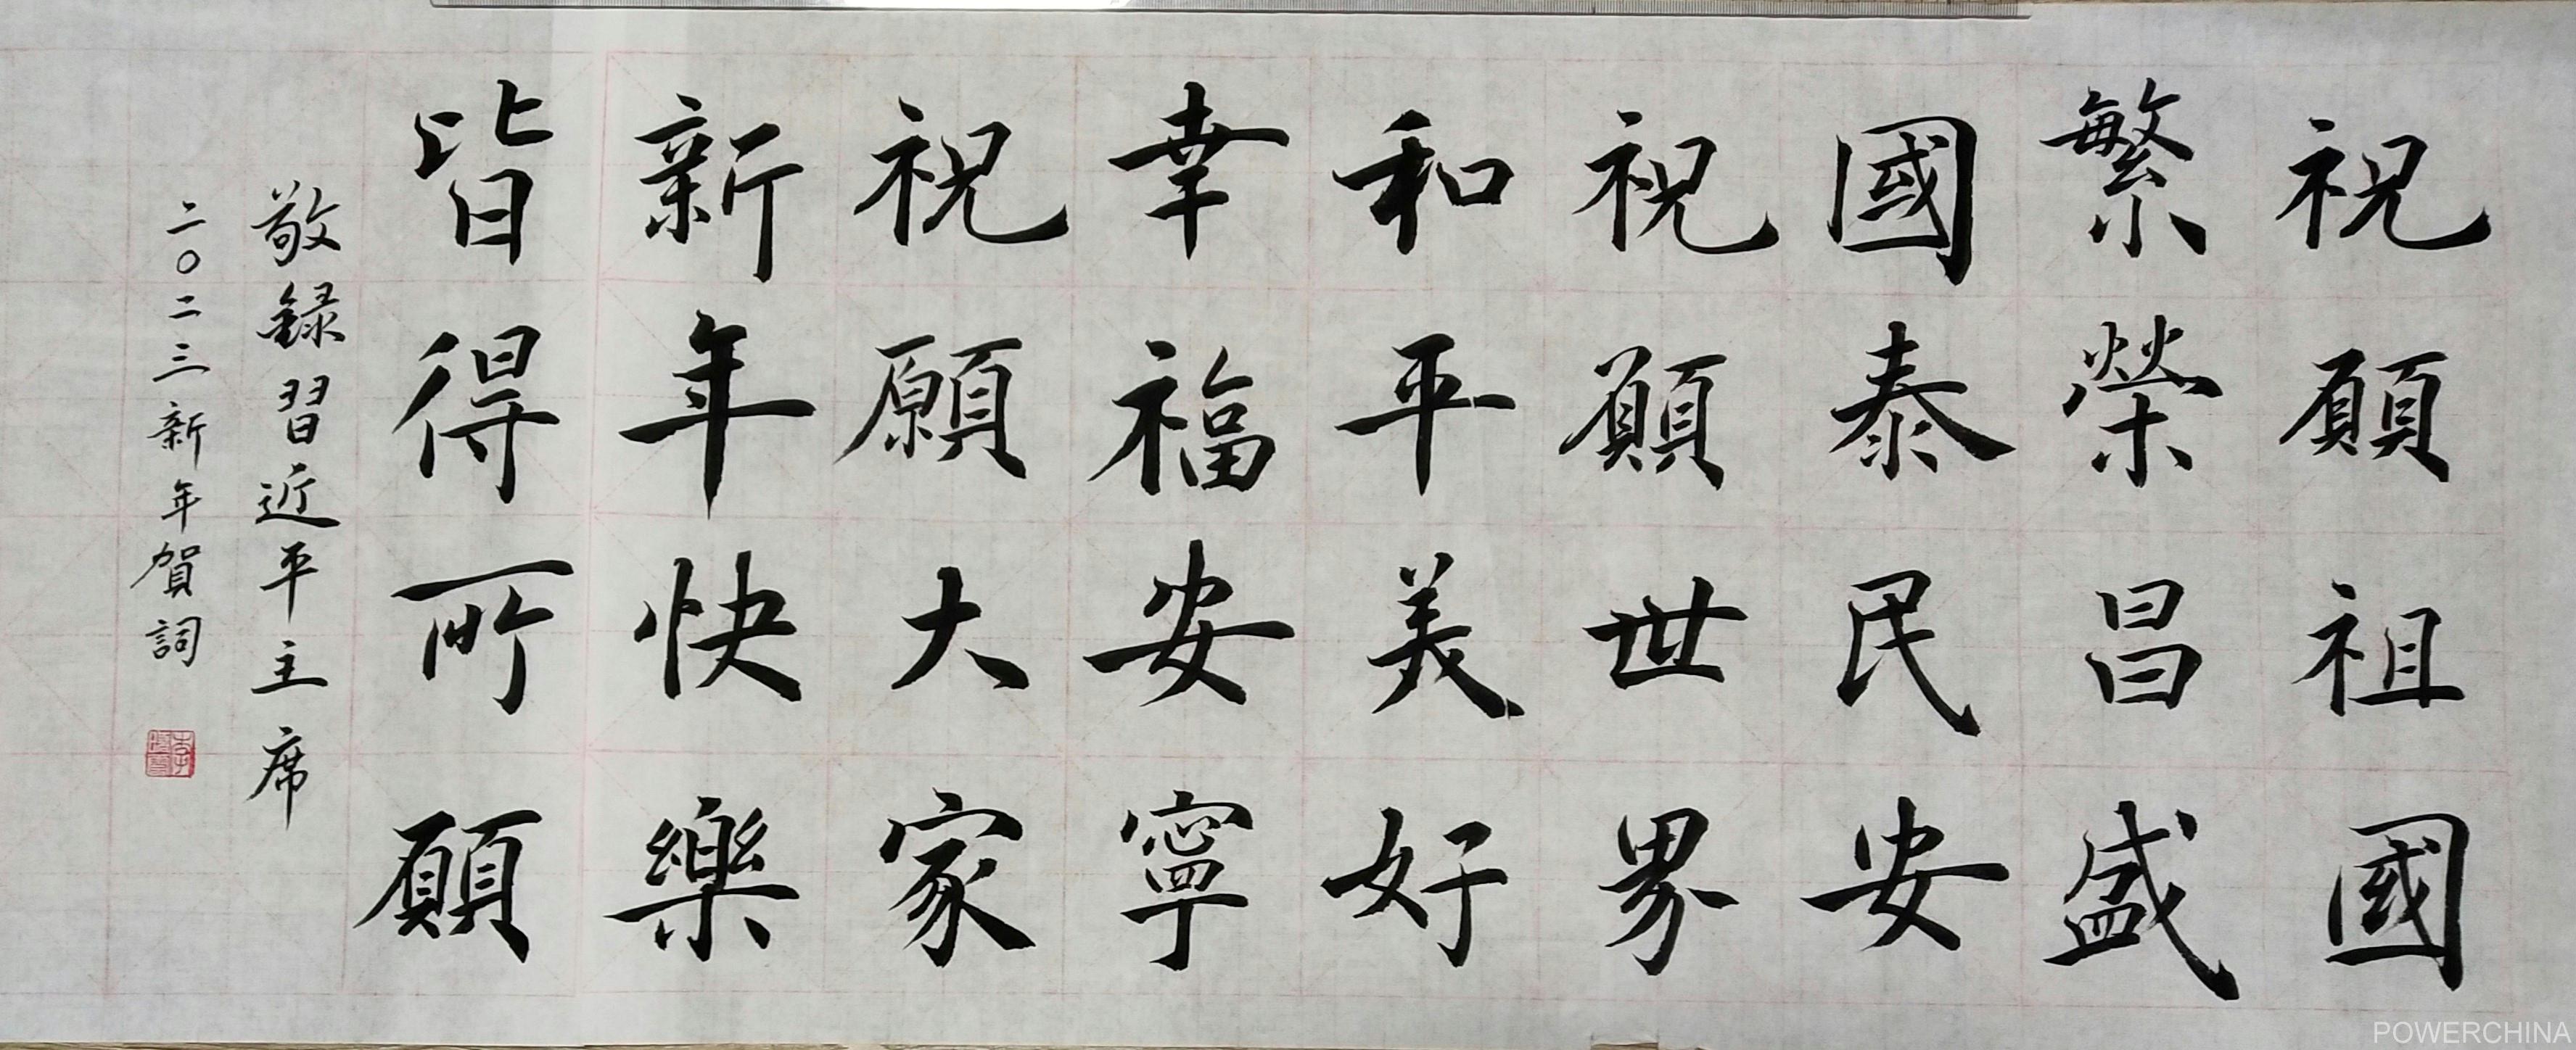 祝願祖國
繁榮昌盛
國泰民安
祝願世界
和平美好
幸福安寧
祝願大家
新年快樂
皆得所願
敬録習近平主席
二〇二三新年賀詞
POWERCHINA